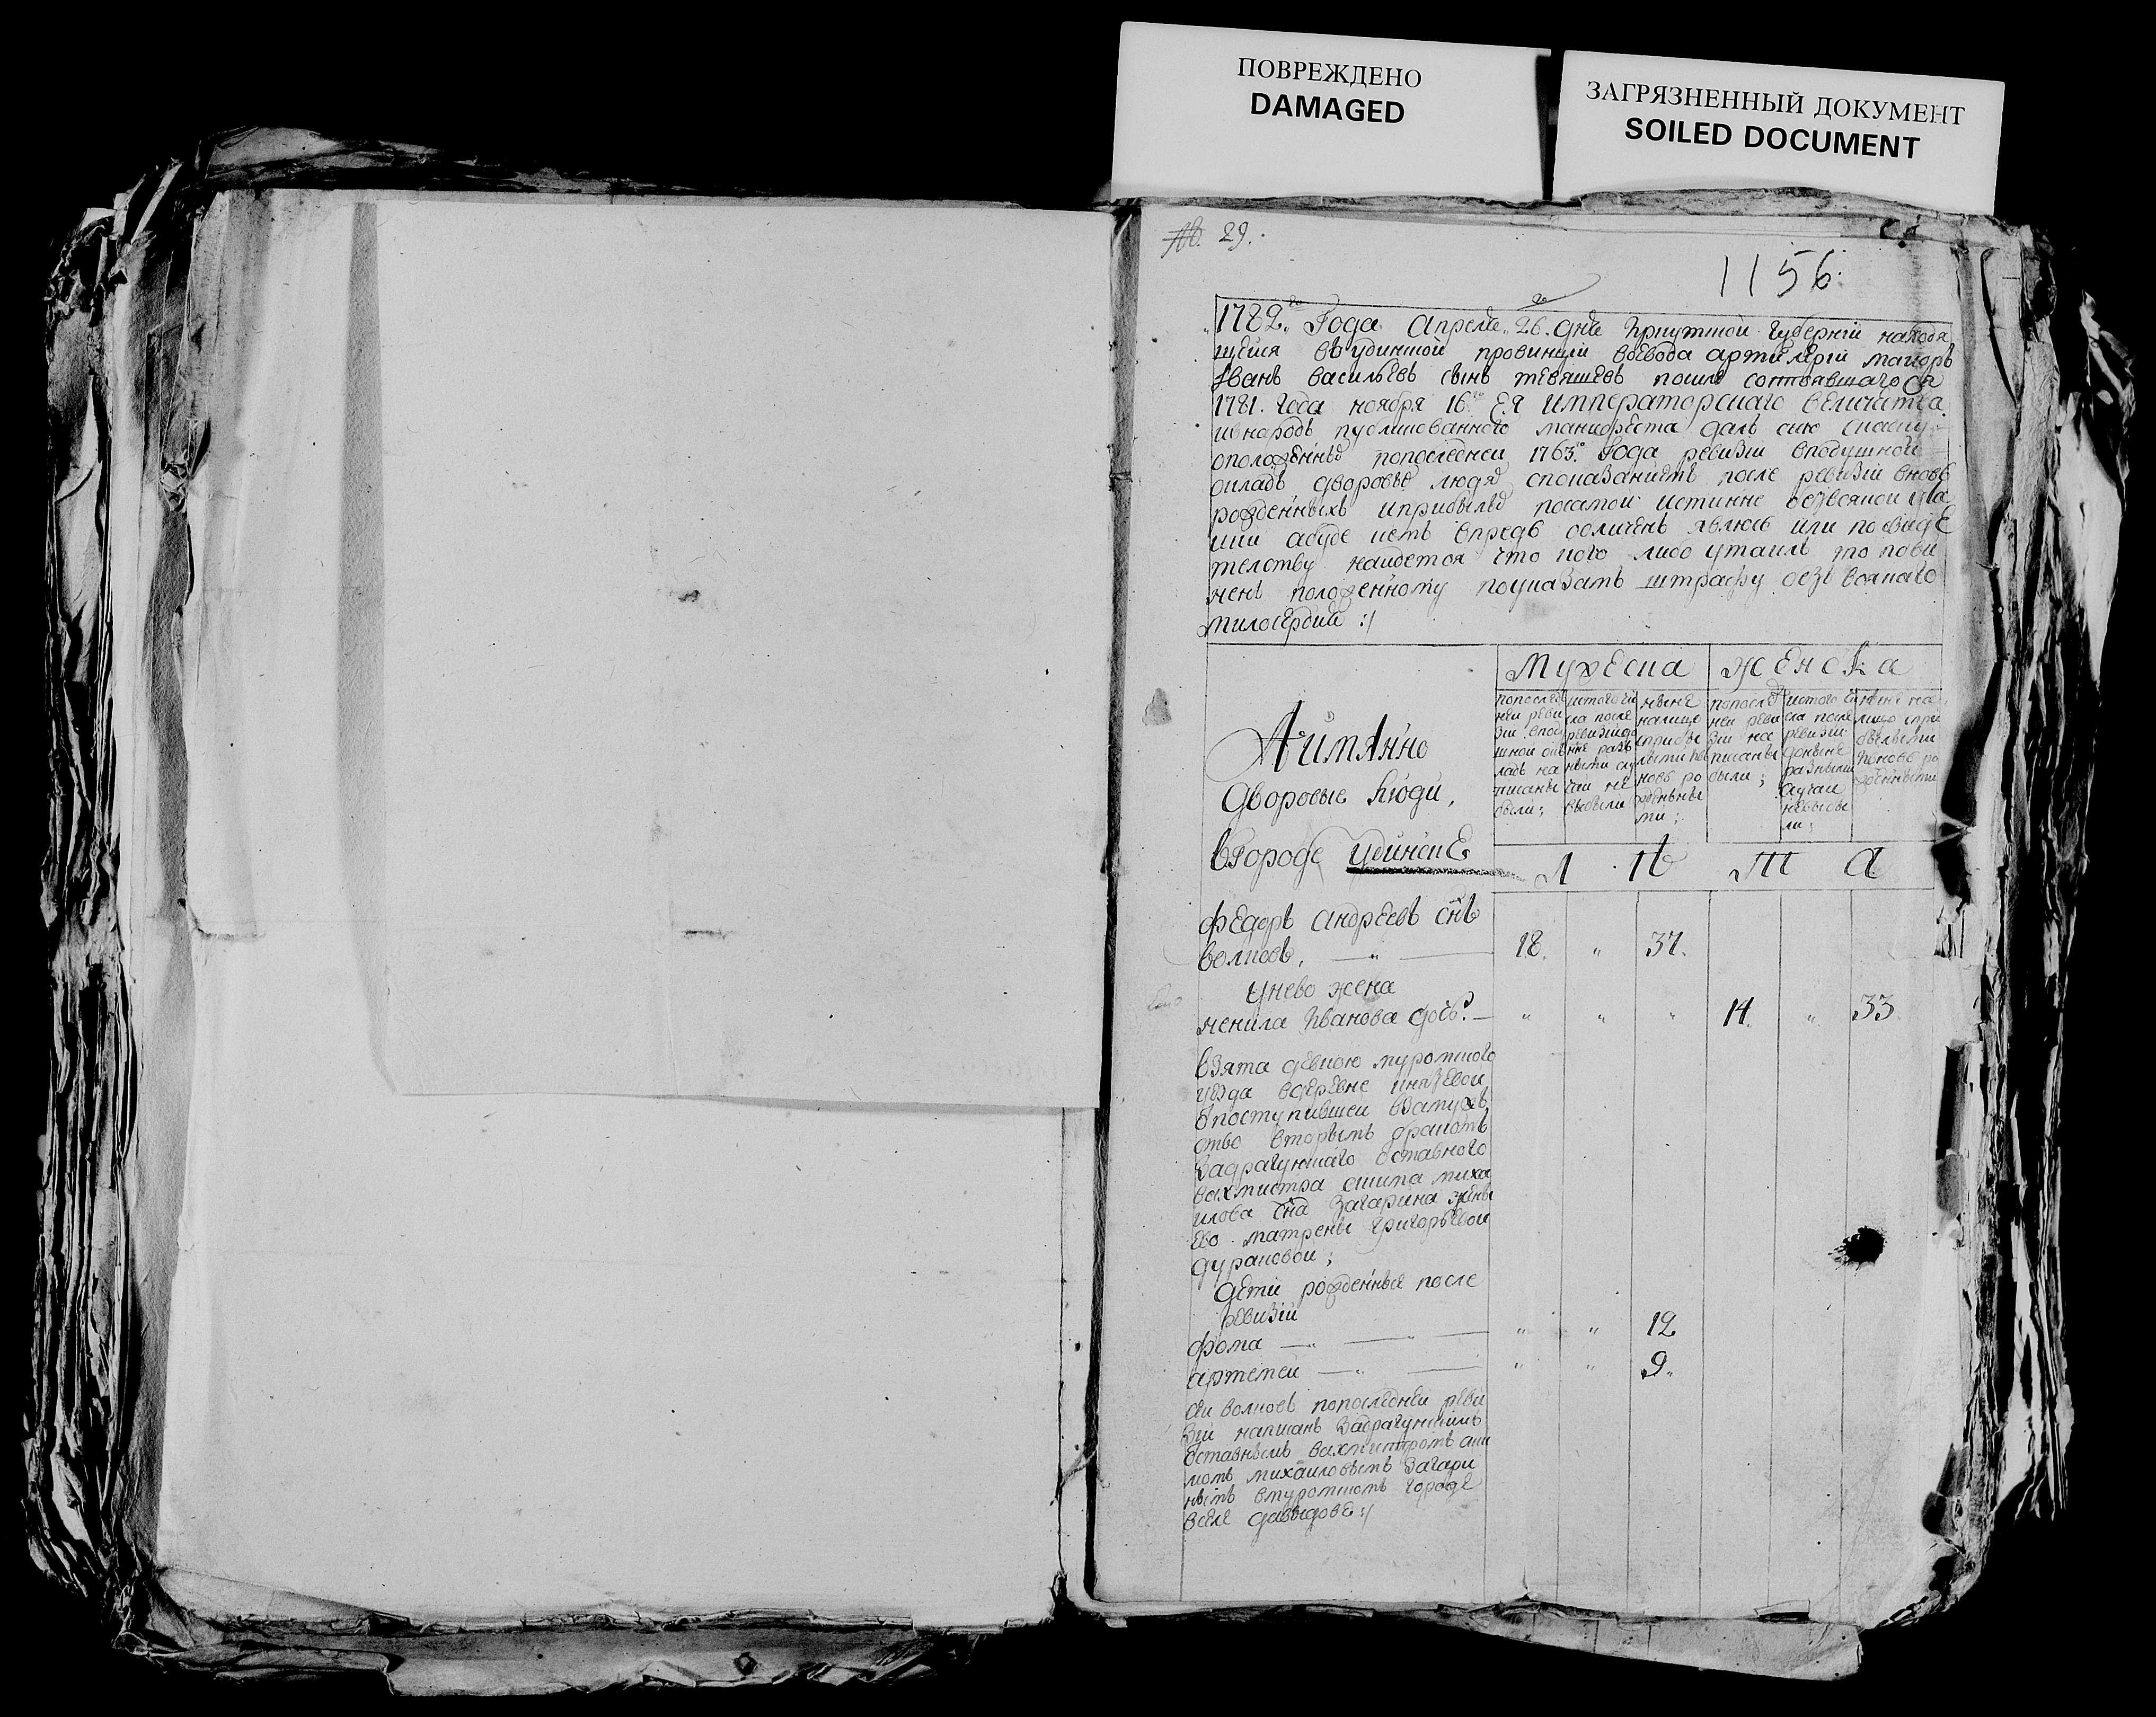 ПОВРЕЖДЕНО
DAMAGED
ЗАГРЯЗНЕННЫЙ ДОКУМЕНТ
SOILED DOCUMENT
№ 29.
1156.
1782го Года апреля 26го дня Иркутской губернии находя
щейся въ удинской провинции воевода артилерии маиоръ
Иванъ васильевъ сынъ тевяшевъ после состоявшагося
1781. года ноября 16го Ея императорскаго величества
въ народъ публикованного манифеста далъ сию скаску
о положенныѣ по последней 1763го Года ревизии в подушной
окладъ дворовыѣ людя с показаниемъ после ревизии вновь
рожденныхъ и прибылыѣ по самой истинне безъ всякой ута
ики а буде чемъ впредь обличенъ явлюсь или по свиде
телству найдется что кого либо утаилъ то пови
ненъ положенному по указамъ штрафу безъ всякаго
милосердия :/
Мужеска
женска
по послед
ней реви
зии в под
шной ок
ладъ на
писаны
были;
ис того чи
сла после
ревизии до
ныне разъ
ными слу
чаи
выбыли
ныне
на лице
с прибы
лыми и в
новь ро
жденны
ми;
по послѣд
ней реви
зии на
писаны
были;
ис того чи
сла после
ревизии
доныне
разными
случаи
выбы
ли;
ныне на
лицо с при
былыми
и вновь ро
жденными
А имянно
Дворовые люди,
в городе удинске
Л ѣ т а
федоръ андреевъ снъ
волковъ, 18. " 37.
у нево жена
ненила Иванова дочь. " " " 14. " 33
взята девкою муромского
уезда в деревне князевой
от поступившей в замуже
ство вторымъ бракомъ
за драгунскаго отставного
вахмистра акима миха
илова сна загарина жены
ево матрены григорьевой
дураковой;
дети рожденные после
ревизии
фома " " 12
артемей " " 9.
сей волковъ по последней реви
зии написанъ за драгунскимъ
отставнымъ вахмистромъ аки
момъ михаиловымъ загари
нымъ в муромскомъ городе
в селе давыдове :/